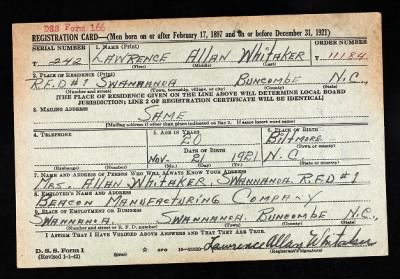 DSS Form 166
REGISTRATION CARD—(Men born on or after February 17, 1897 and on or before December 31, 1921)
SERIAL NUMBER 1. Name (Print) ORDER NUMBER
T 242 LAWRENCE ALLAN WHITAKER 11184
(First) (Middle) (Last)
2. PLACE OF RESIDENCE (Print)
R.F.D #1 SWANNANOA BUNCOMBE N.C.,
(Number and street) (Town, township, village, or city) (County) (State)
[THE PLACE OF RESIDENCE GIVEN ON THE LINE ABOVE WILL DETERMINE LOCAL BOARD
JURISDICTION; LINE 2 OF REGISTRATION CERTIFICATE WILL BE IDENTICAL]
3. MAILING ADDRESS
SAME
[Mailing address if other than place indicated on line 2. If same insert word same]
4. TELEPHONE 5. AGE IN YEARS 6. PLACE OF BIRTH
20 BILTMORE
DATE OF BIRTH (Town or county)
NOV. 21 1921 N.C
(Exchange) (Number) (Mo.) (Day) (Yr.) (State or country)
7. NAME AND ADDRESS OF PERSON WHO WILL ALWAYS KNOW YOUR ADDRESS
MRS. ALLAN WHITAKER, SWANNANOA R.F.D #1
8. EMPLOYER'S NAME AND ADDRESS
BEACON MANUFACTURING COMPANY
9. PLACE OF EMPLOYMENT OR BUSINESS
SWANNANOA. SWANNANOA. BUNCOMBE N.C.,
(Number and street or R. F. D. number) (Town) (County) (State)
I AFFIRM THAT I HAVE VERIFIED ABOVE ANSWERS AND THAT THEY ARE TRUE.
D. S. S. Form 1
(Revised 1-1-42) (over) Lawrence Allan Whitaker
(Registrant's signature)